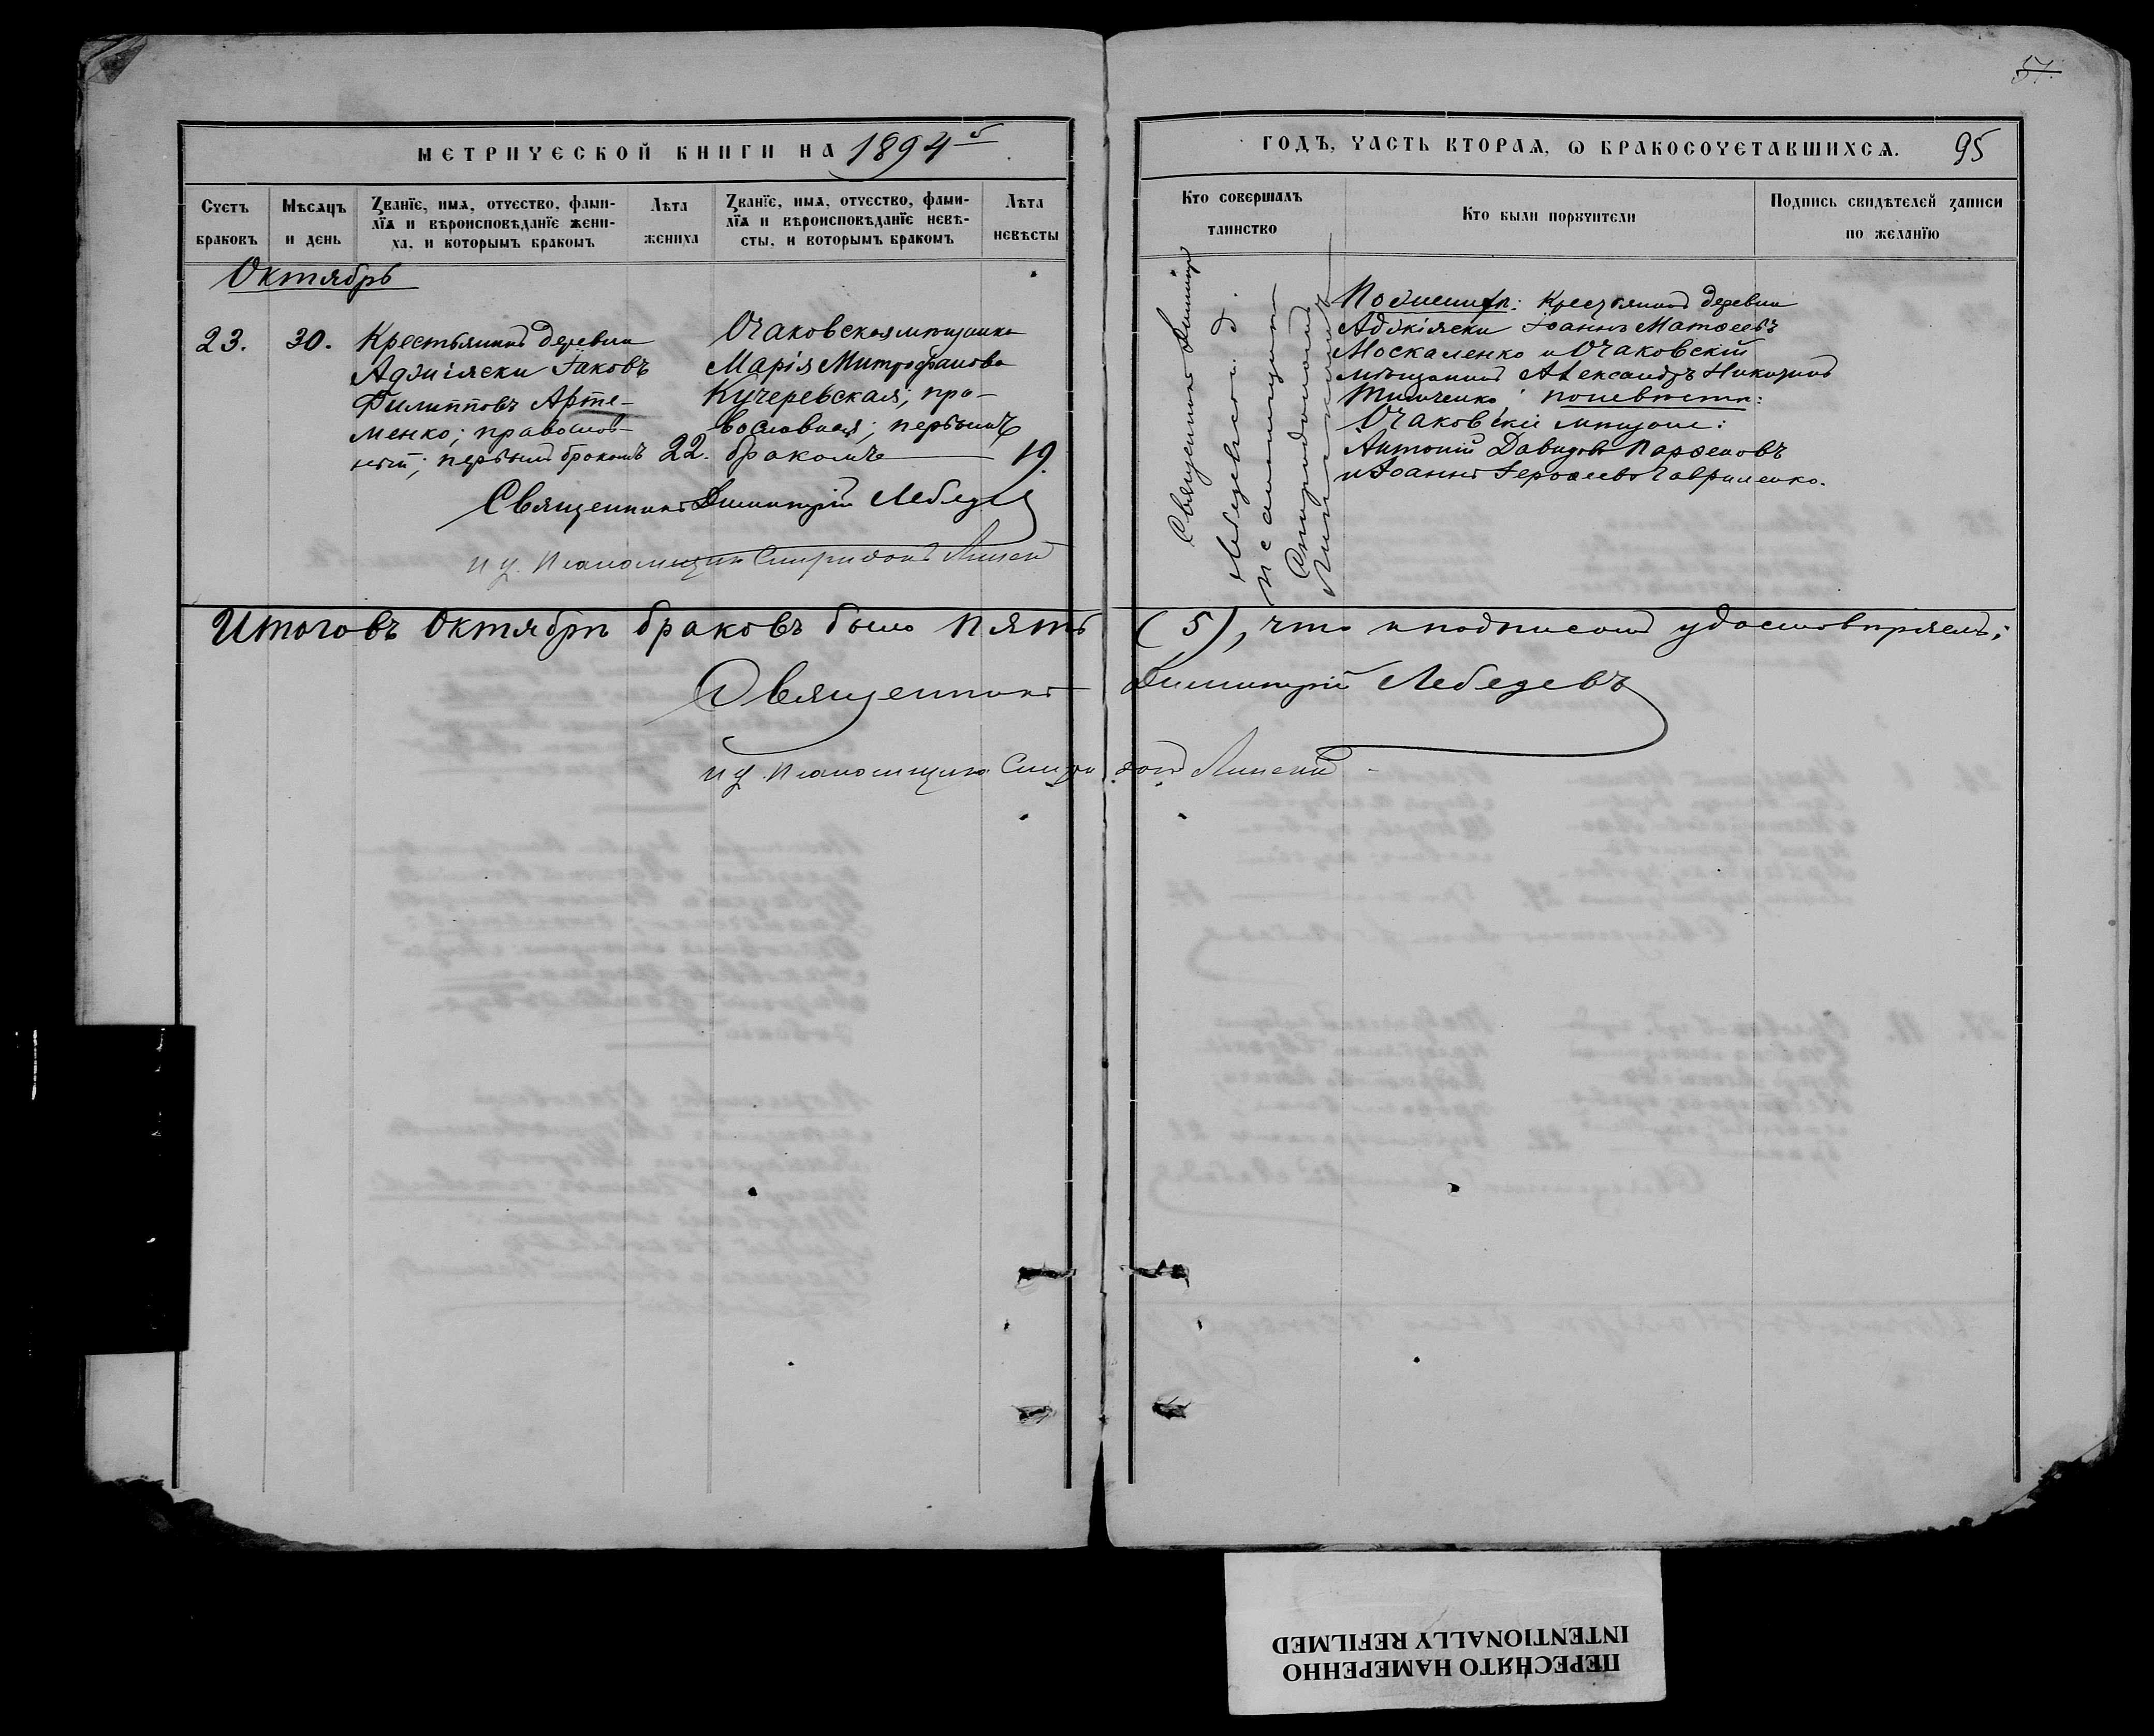 57.
МЕТРИЧЕСКОЙ КНИГИ НА 1894й
ГОДЪ, ЧАСТЬ ВТОРАЯ, Ѡ БРАКОСОЧЕТАВШИХСЯ. 95
Счетъ браковъ
Мѣсяцъ и день
Званіе, имя, отчество, фами-
лія и вѣроисповѣданіе жени-
ха, и которымъ бракомъ
Лѣта жениха
Званіе, имя, отчество, фами-
лія и вѣроисповѣданіе невѣ-
сты, и которымъ бракомъ
Лѣта невѣсты
Кто совершалъ таинство
Кто были поручители
Подпись свидѣтелей записи
по желанію
Октябрь
23.
30.
Крестьянинъ деревни
Аджіяски Іаковъ
Филипповъ Арте-
менко; православ-
ный; первымъ бракомъ
22.
Очаковская мѣщанка
Марія Митрофанова
Кучеревская, пра-
вославная; первымъ
бракомъ
19.
Священникъ Димитрій
Лебедевъ и д.
псаломщика
Спиридонъ
По женихѣ: Крестьянинъ деревни
Аджіяски Іоаннъ Матѳеевъ
Москаленко и Очаковскій
мѣщанинъ Александръ
Тимченко по невѣстѣ:
Очаковскіе мѣщане:
Антоній Давидовъ Парѳеновъ
и Іоаннъ Гавриленко.
Священникъ Димитрій Лебедев
и д. Псаломщика Спиридонъ
Итого въ Октябрѣ браковъ было пять (5), что и подписомъ удостовѣряемъ:
Священникъ Димитрій Лебедевъ
и д. Псаломщика Спиридонъ
ПЕРЕСНЯТО НАМЕРЕННО
INTENTIONALLY REFILMED